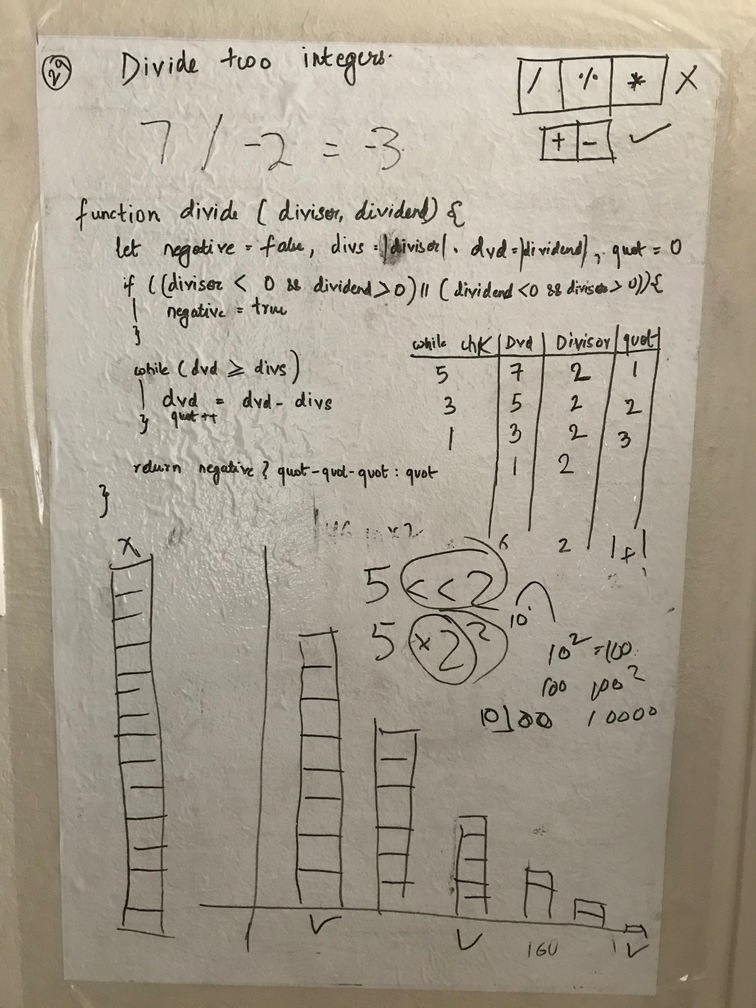 29 Divide two integers.
/ % * X
+ - ✓
7 / -2 = -3
function divide ( divisor, dividend) {
let negative = false, divs = |divisor| . dvd = |dividend|, quot = 0
if ((divisor < 0 && dividend > 0) || ( dividend <0 && divisor > 0)){
negative = true
}
while (dvd ≥ divs)
dvd = dvd - divs
quot++
}
return negative ? quot-quot-quot : quot
}
while chk | Dvd | Divisor | quot
5 7 2 1
3 5 2 2
1 3 2 3
1 2
6 2 1+1
X
5 << 2
5 × 2²
10
10² = 100
100 100²
10000
✓ ✓ 160 1 ✓